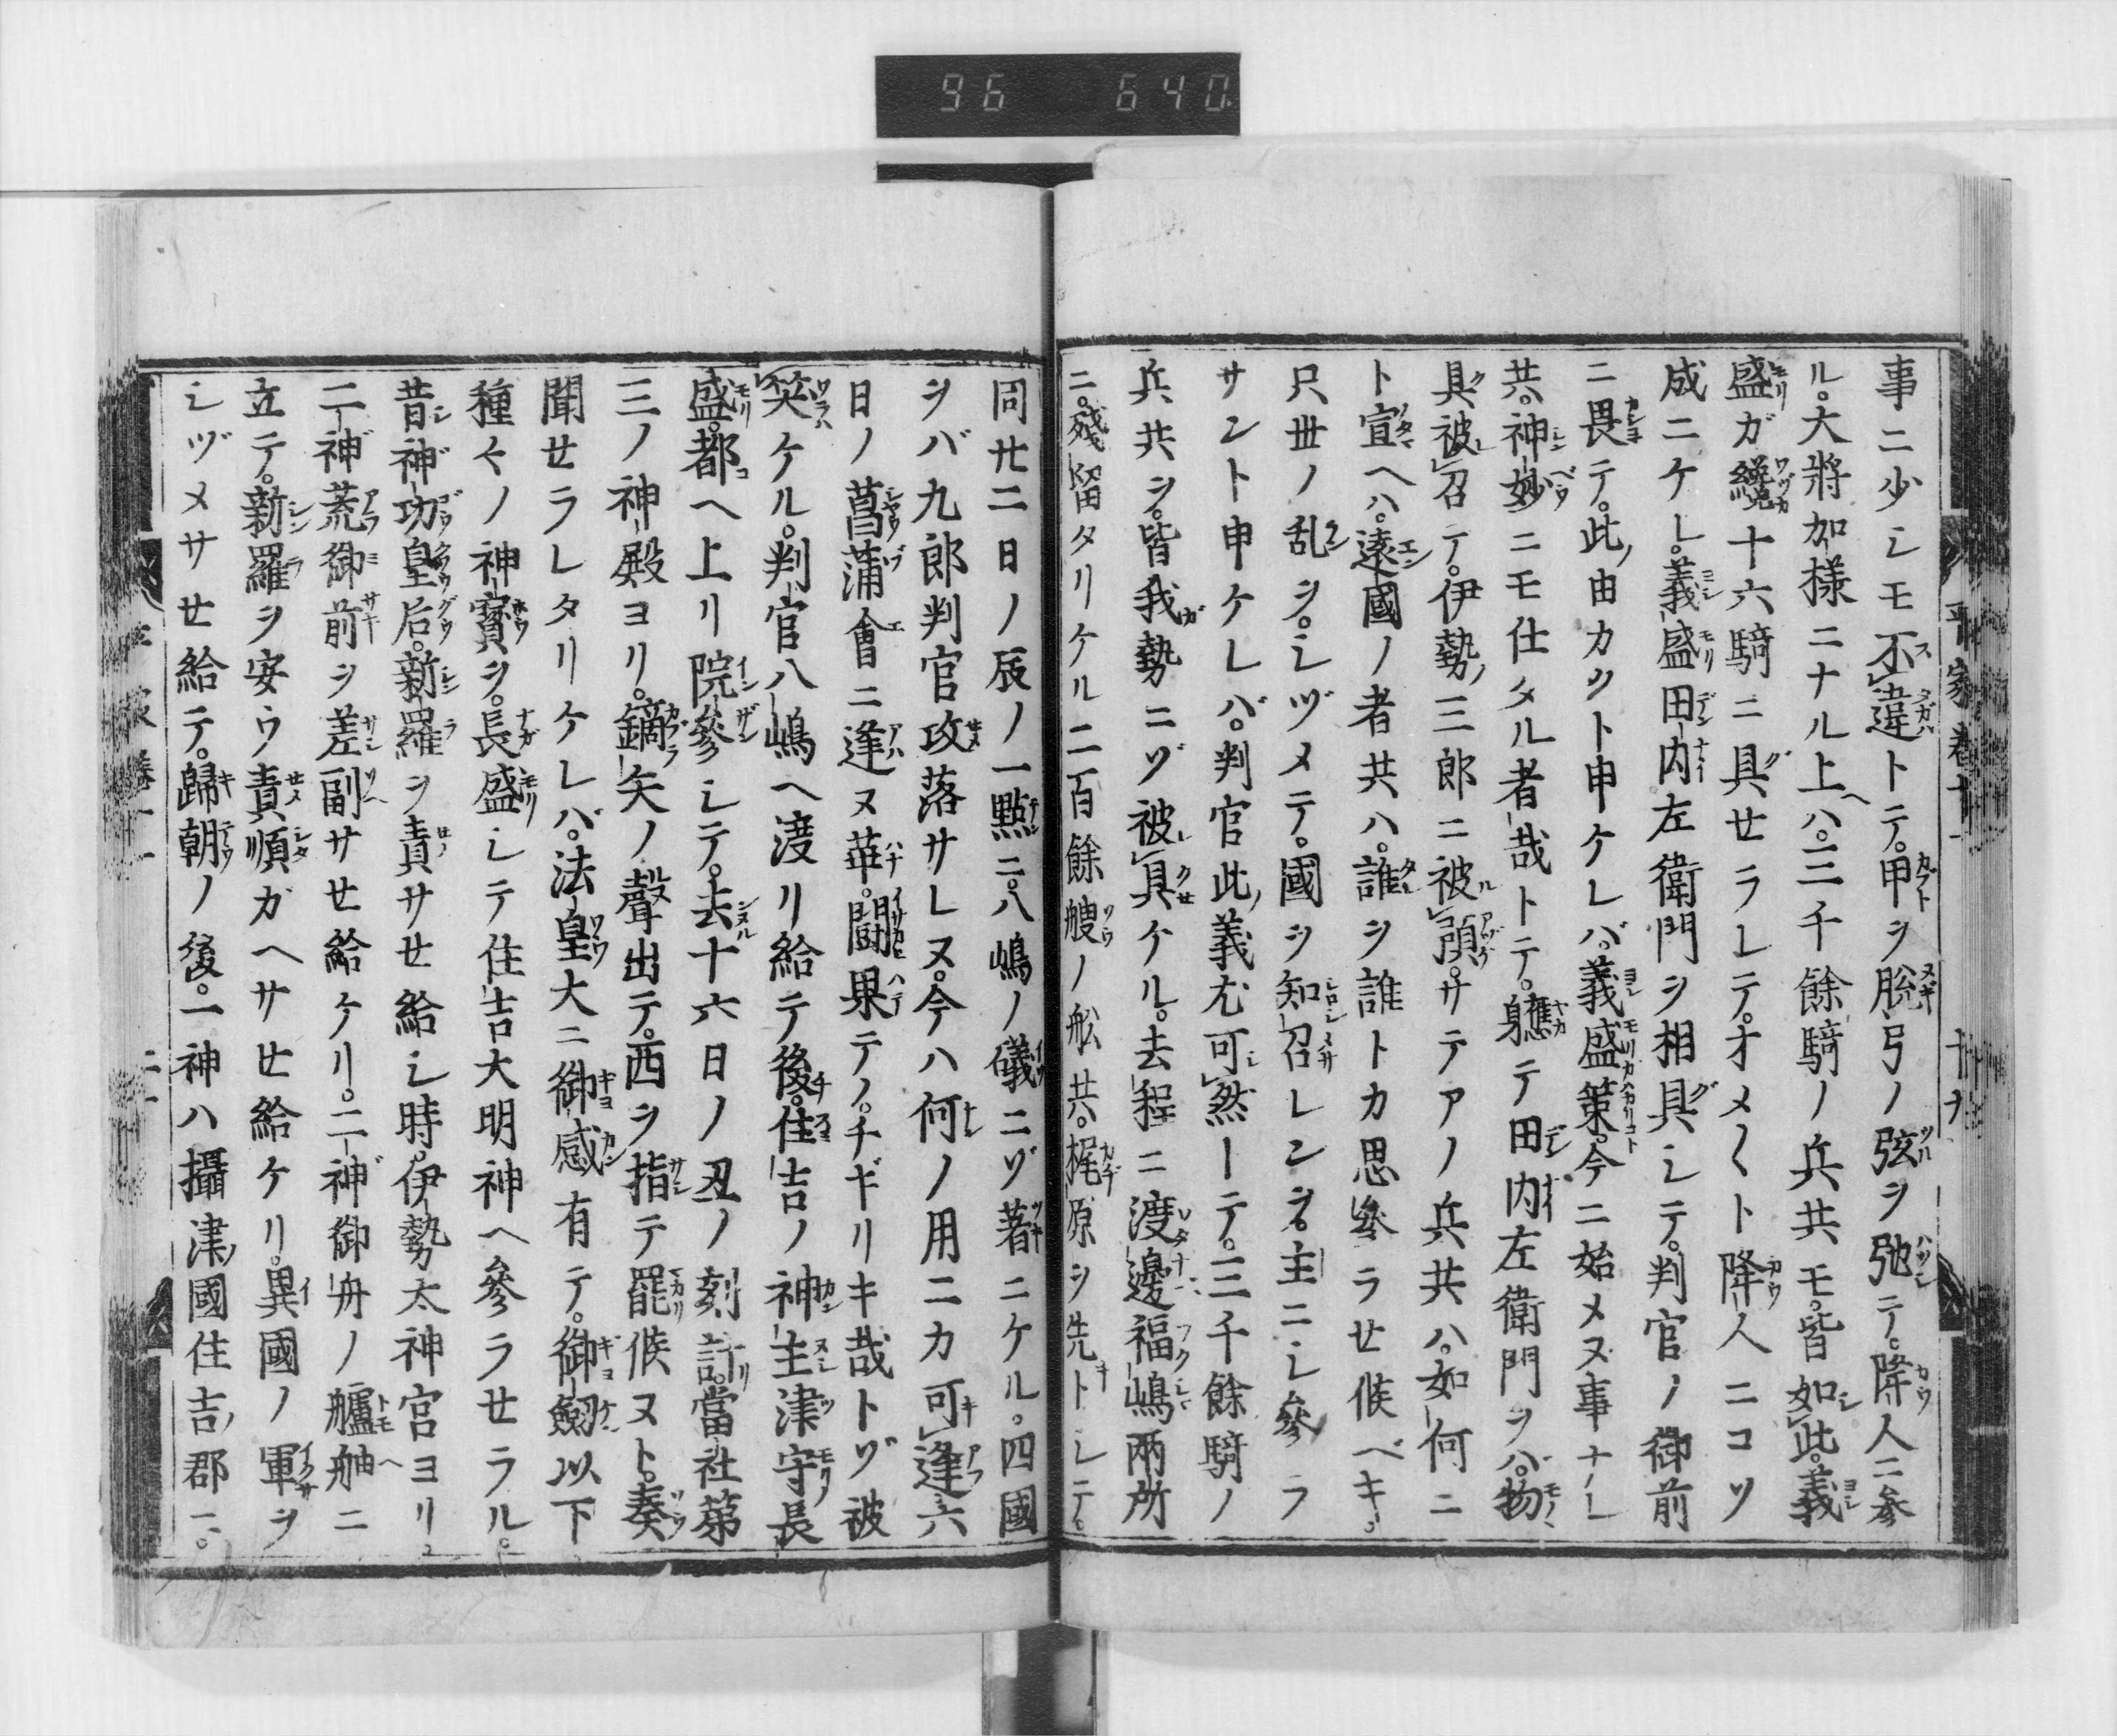 96 640
平家巻十一 十九
事ニ少シモ不違トテ。甲ヲ脱弓ノ弦ヲ弛テ。降人ニ参
ル。大將加様ニナル上ハ。三千餘騎ノ兵共モ。皆如此。義
盛ガ纔十六騎ニ具セラレテ。オメ〱ト降人ニコソ
成ニケレ。義盛田内左衛門ヲ相具シテ。判官ノ御前
ニ畏テ。此由カクト申ケレバ。義盛策。今ニ始メヌ事ナレ
共。神妙ニモ仕タル者哉トテ。軈テ田内左衛門ヲバ。物
具被召テ。伊勢三郎ニ被預。サテアノ兵共ハ。如何ニ
ト宣ヘハ。遠國ノ者共ハ。誰ヲ誰トカ思參ラセ候ベキ。
只世ノ乱ヲ。シヅメテ。國ヲ知召レンヲ。主ニシ參ラ
サント申ケレバ。判官此義尤可然ーテ。三千餘騎ノ
兵共ヲ。皆我勢ニゾ被具ケル。去程ニ渡邊福嶋兩所
ニ。殘留タリケル二百餘艘ノ舩共。梶原ヲ先トシテ。
同廿二日ノ辰ノ一點ニ。八嶋ノ儀ニゾ著ニケル。四國
ヲバ九郎判官攻落サレヌ。今ハ何ノ用ニカ可逢六
日ノ菖蒲會ニ逢ヌ華。鬪果テノ。チギリキ哉トゾ被
笑ケル。判官八嶋ヘ渡リ給テ後。住吉ノ神主津守長
盛。都ヘ上リ院參シテ。去十六日ノ丑ノ刻許。當社第
三ノ神殿ヨリ。鏑矢ノ聲出テ。西ヲ指テ罷候ヌト。奏
聞セラレタリケレバ。法皇大ニ御感有テ。御劔以下
種々ノ神寳ヲ。長盛シテ住吉大明神ヘ參ラセラル。
昔神功皇后。新羅ヲ責サセ給シ時。伊勢太神宮ヨリ。
二神荒御前ヲ差副サセ給ケリ。二神御舟ノ艫舳ニ
立テ。新羅ヲ安ウ責順ガヘサセ給ケリ。異國ノ軍ヲ
シヅメサセ給テ。歸朝ノ後。一神ハ攝津國住吉郡ニ。